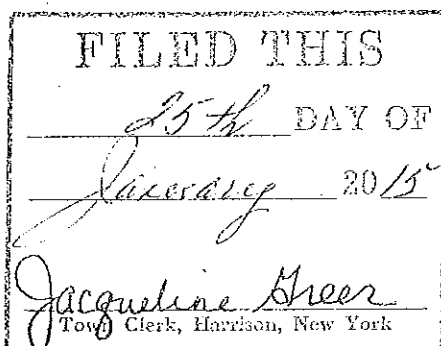 FILED THIS
25th DAY OF
January 2015
Jacqueline Greer
Town Clerk, Harrison, New York